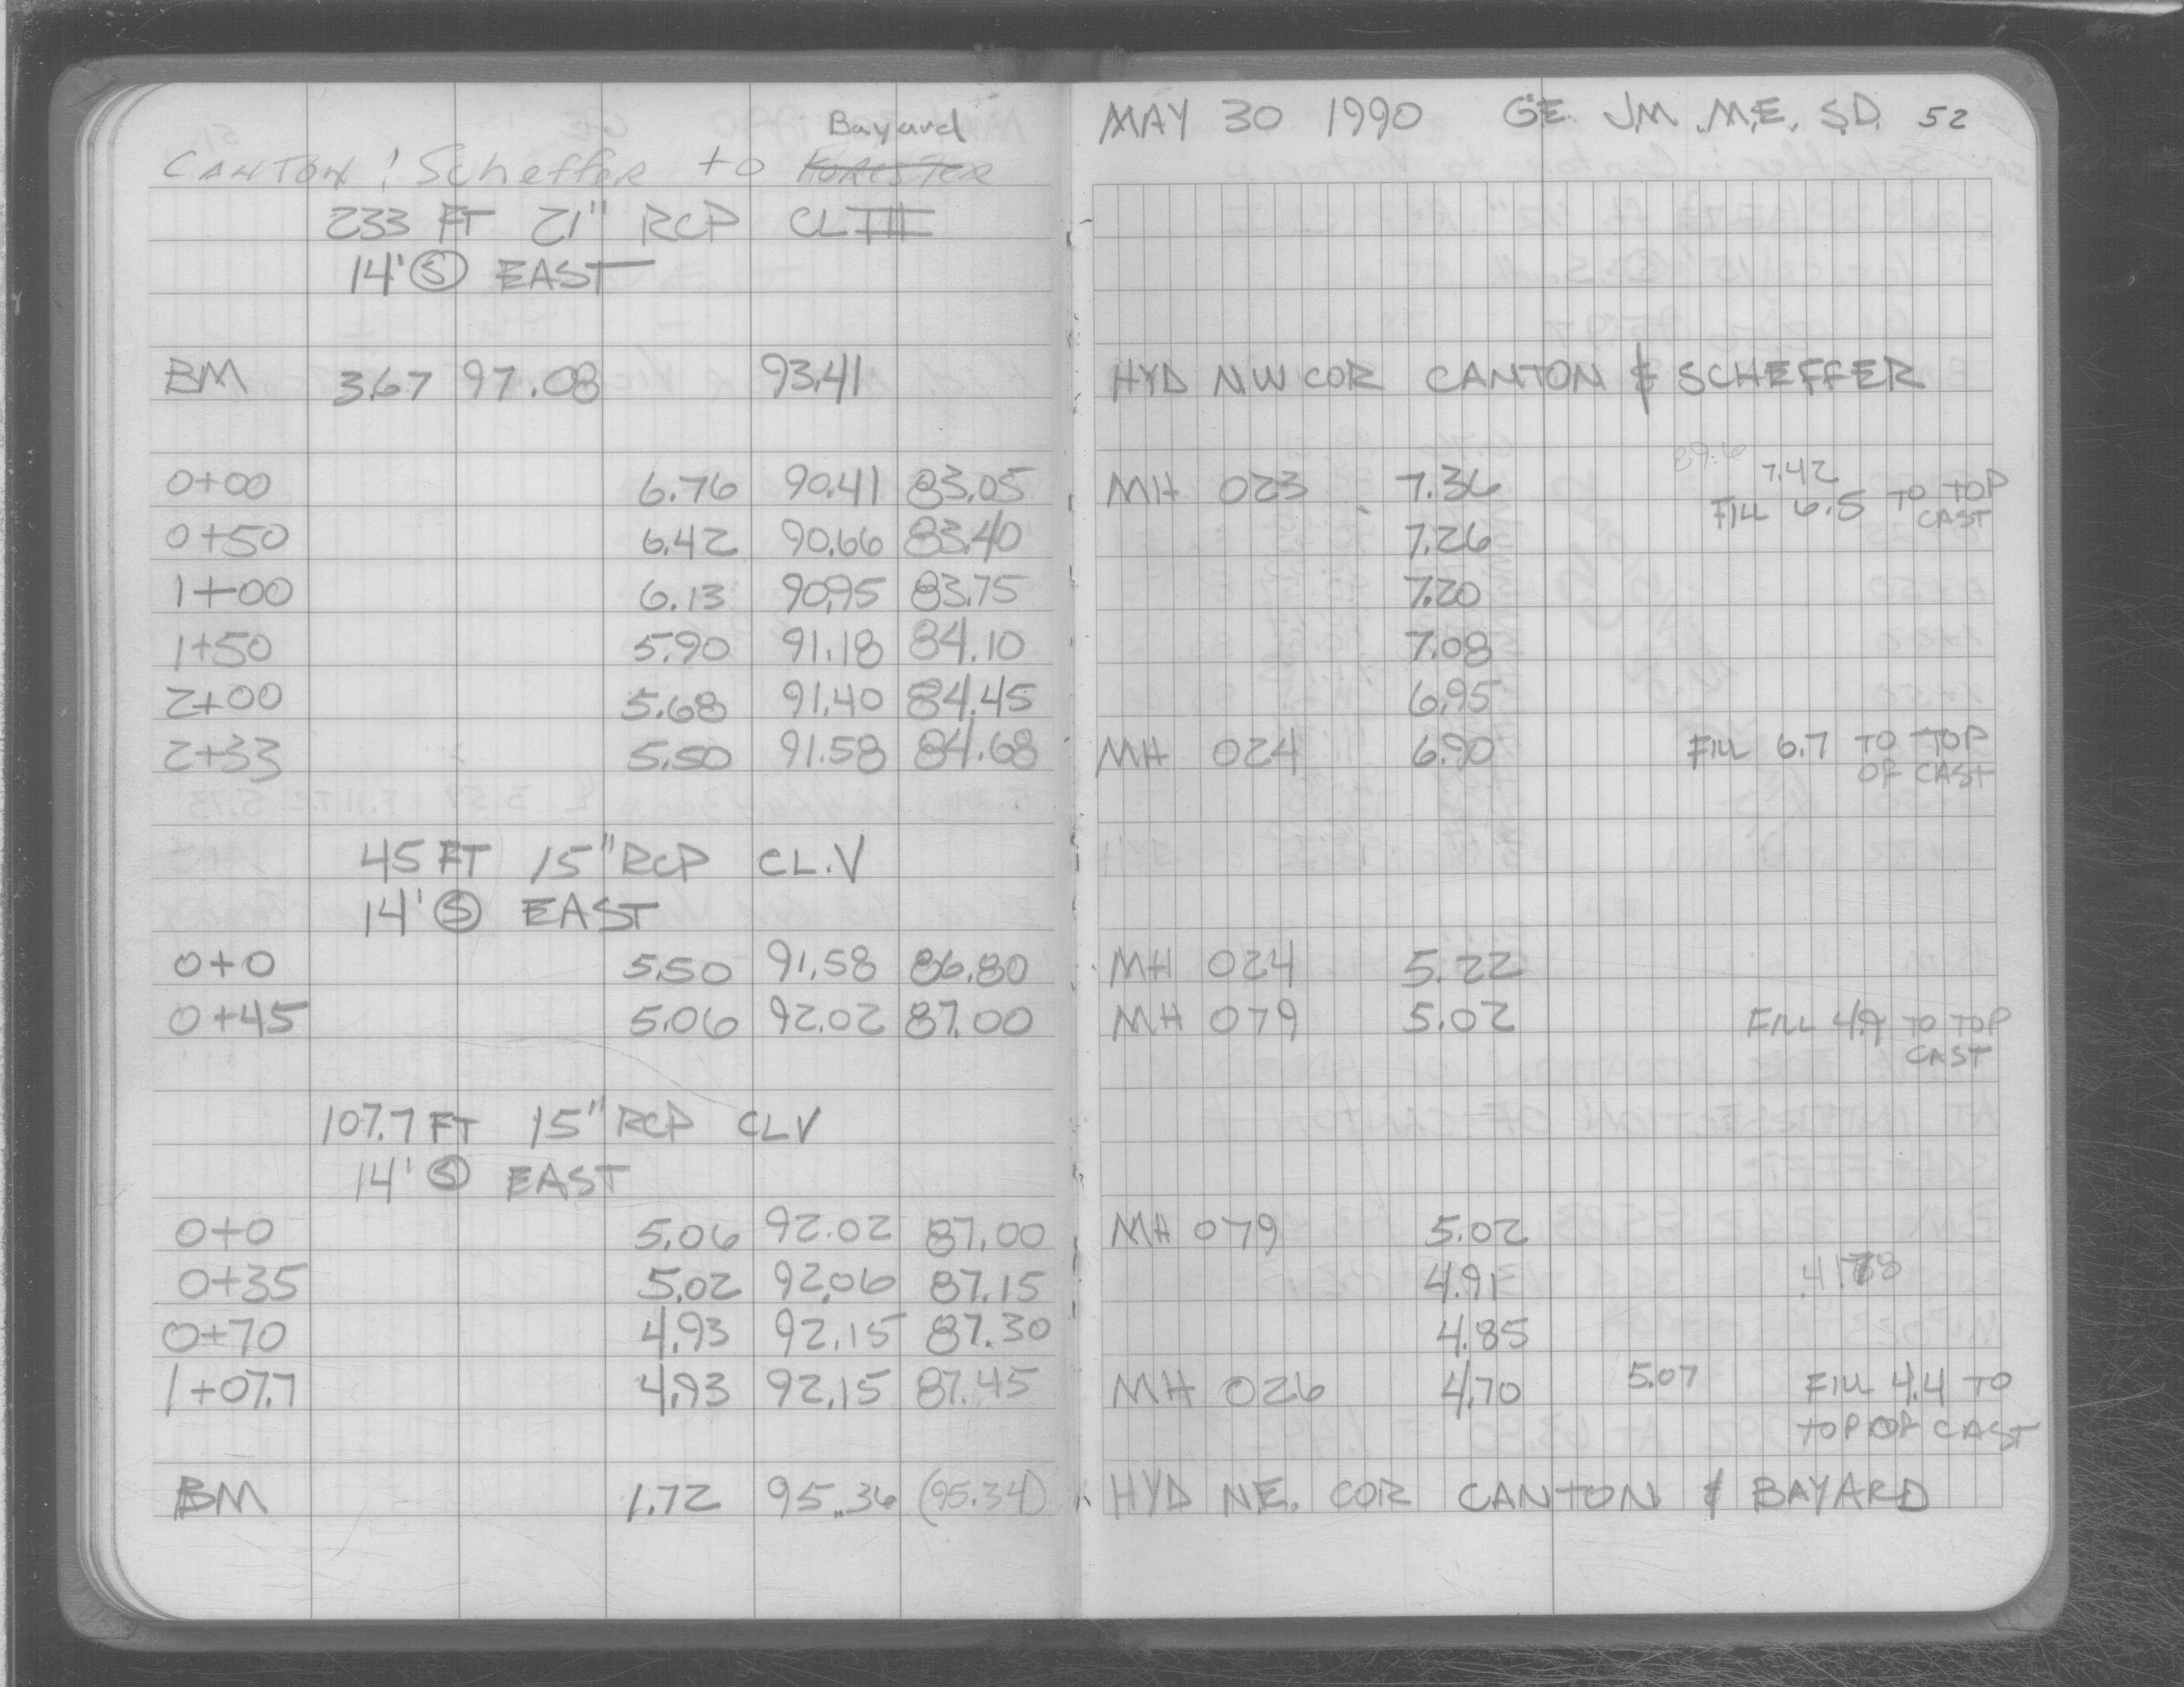 Bayard
CANTON : Scheffer to FORESTER
233 FT 21" RCP CL III
14' Ⓢ EAST
BM 3.67 97.08 93.41
0+00 6.76 90.41 83.05
0+50 6.42 90.66 83.40
1+00 6.13 90.95 83.75
1+50 5.90 91.18 84.10
2+00 5.68 91.40 84.45
2+33 5.50 91.58 84.68
45 FT 15" RCP CL.V
14' Ⓢ EAST
0+0 5.50 91.58 86.80
0+45 5.06 92.02 87.00
107.7 FT 15" RCP CL V
14' Ⓢ EAST
0+0 5.06 92.02 87.00
0+35 5.02 92.06 87.15
0+70 4.93 92.15 87.30
1+07.7 4.93 92.15 87.45
BM 1.72 95.36 (95.34)
MAY 30 1990 G.E. J.M. M.E. S.D. 52
HYD NW COR CANTON & SCHEFFER
89.6
7.42
MH 023 7.36 FILL 6.5 TO TOP
CAST
7.26
7.20
7.08
6.95
MH 024 6.90 FILL 6.7 TO TOP
OF CAST
MH 024 5.22
MH 079 5.02 FILL 4.9 TO TOP
CAST
MH 079 5.02
4.91
4.85
MH 026 4.70 5.07 FILL 4.4 TO
TOP OF CAST
HYD N.E. COR CANTON & BAYARD